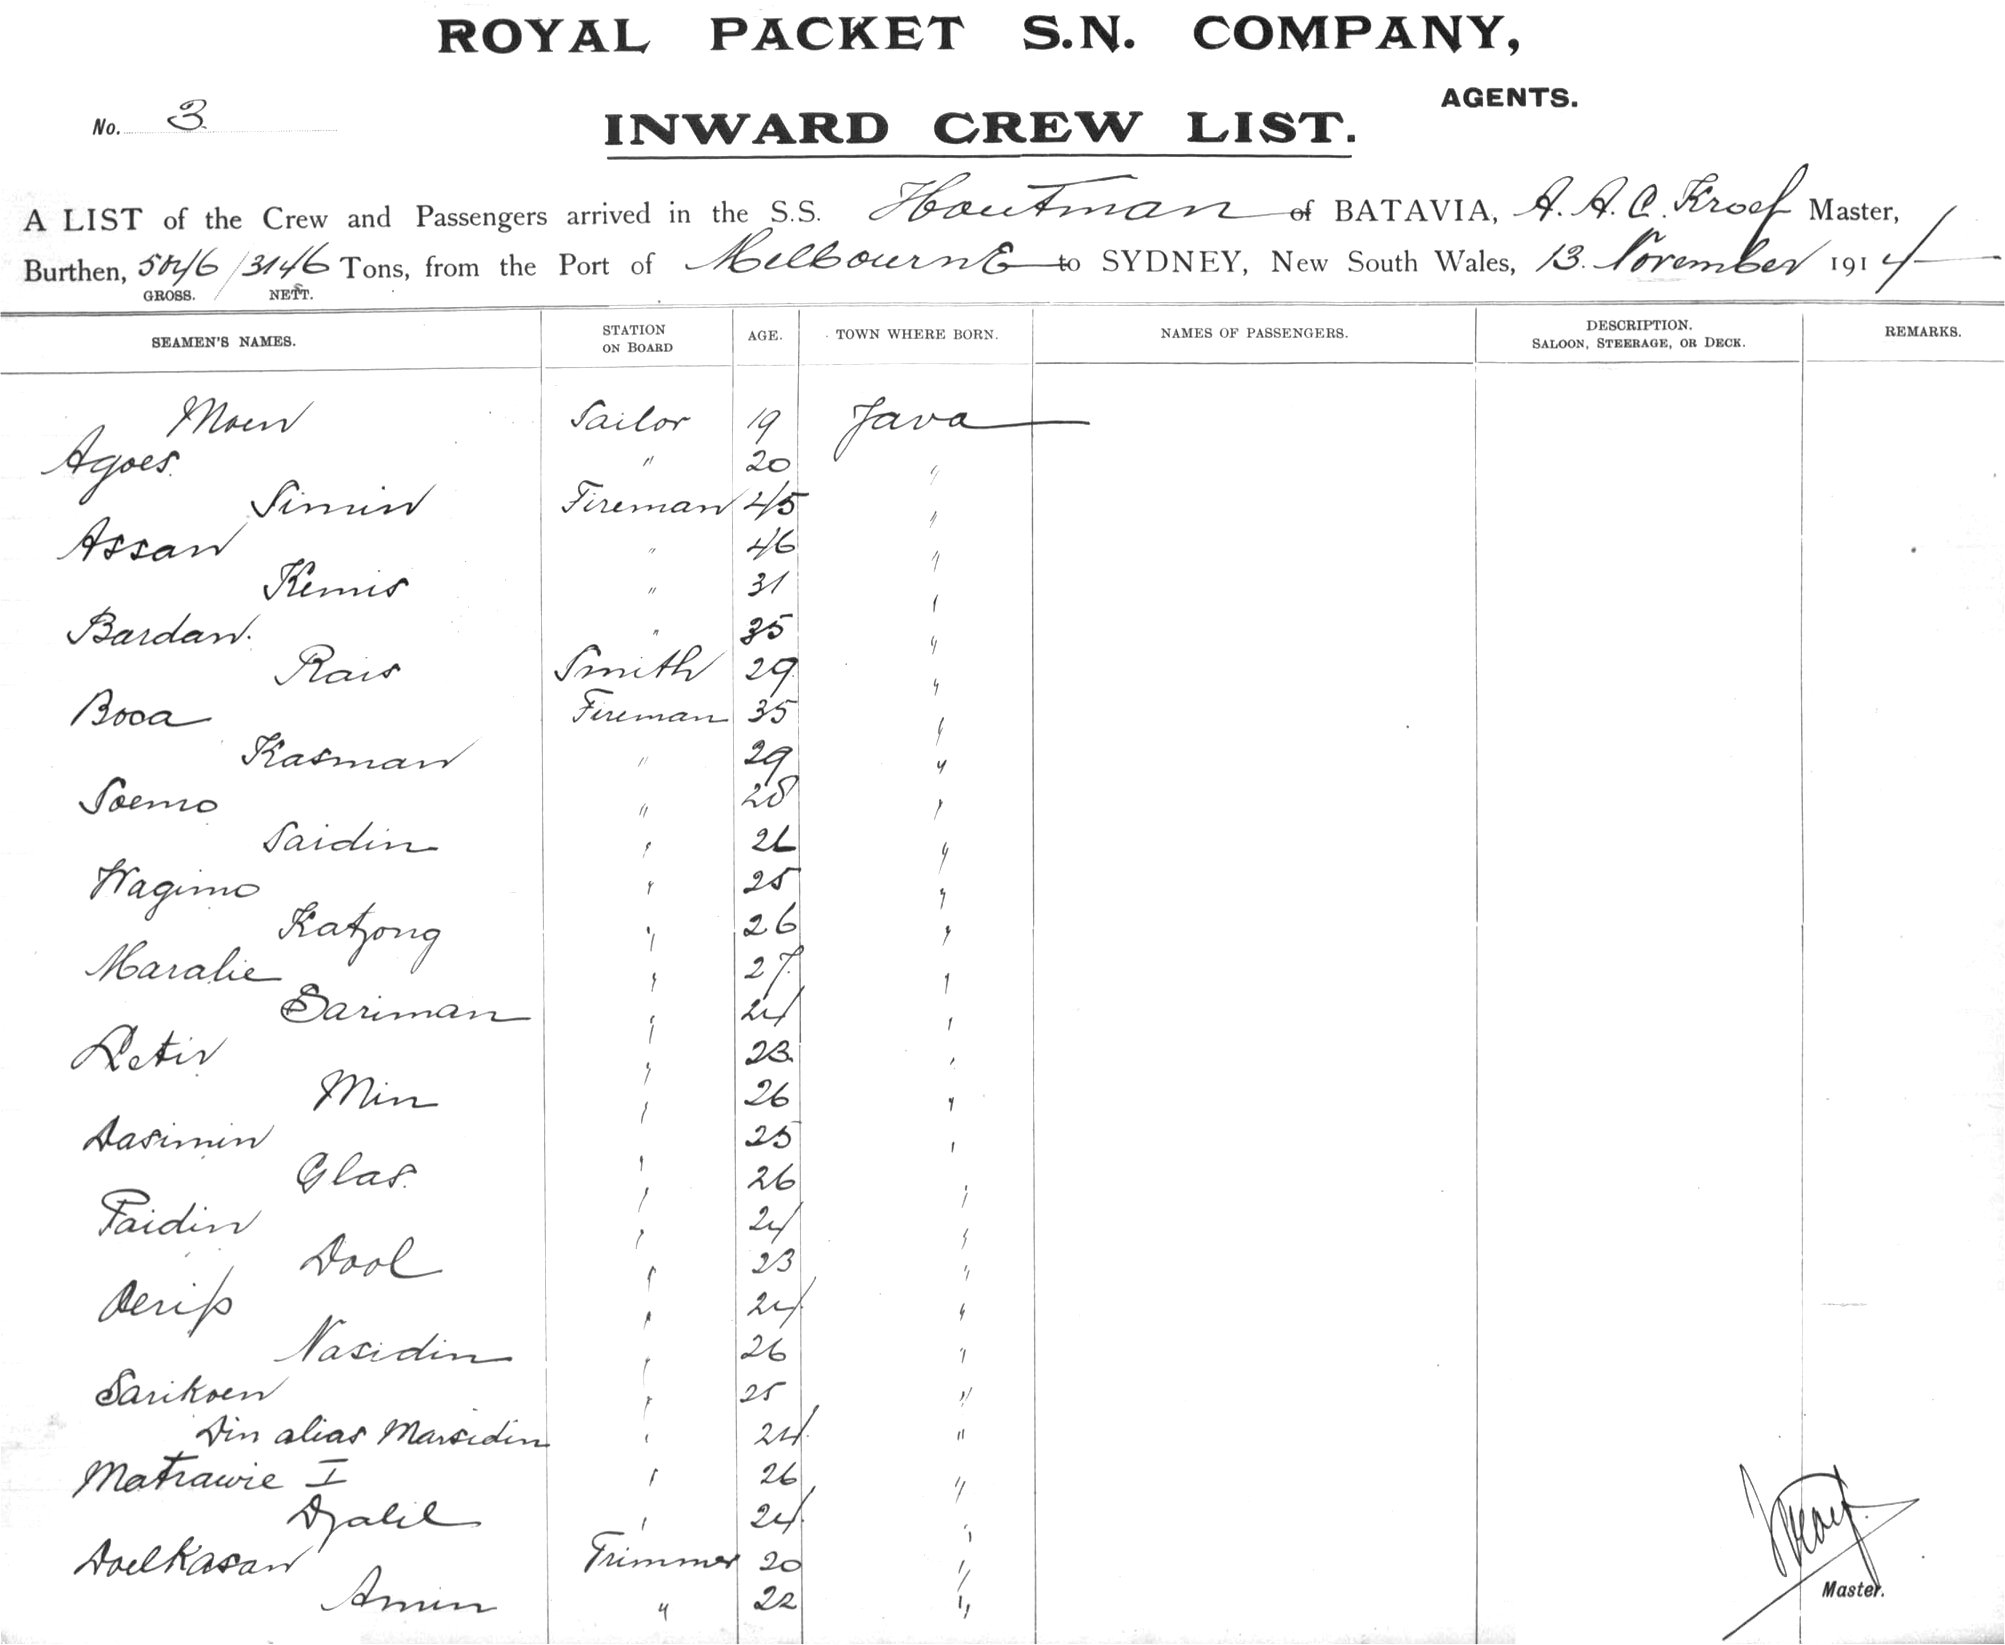 ROYAL PACKET S.N. COMPANY,
AGENTS.
No. 3
INWARD CREW LIST.
A LIST of the Crew and Passengers arrived in the S.S. Houtman of BATAVIA, A. A. C. Kroef Master,
Burthen, 5046/3146 Tons, from the Port of Melbourne to SYDNEY, New South Wales, 13. November 1914
GROSS. / NETT.
SEAMEN'S NAMES. STATION ON BOARD AGE. TOWN WHERE BORN. NAMES OF PASSENGERS. DESCRIPTION. SALOON, STEERAGE, OR DECK. REMARKS.
Moen Sailor 19 Java
Agoes. " 20 "
Simin Fireman 45 "
Assan " 46 "
Kemis " 31 "
Bardan. " 35 "
Rais Smith 29 "
Booa Fireman 35 "
Kasman " 29 "
Soemo " 28 "
Saidin " 26 "
Wagimo " 25 "
Katjong " 26 "
Maralie " 27. "
Sariman " 24 "
23. "
Min " 26 "
Dasimin " 25 "
Glas. " 26 "
Paidin " 24 "
Dool " 23 "
" 24 "
Nasidin " 26 "
Sarikoen " 25 "
Din alias Marsidin " 24 "
Matrawie I " 26 "
Djalil " 24 "
Doelkasan Trimmer 20 "
Amin " 22 "
Kroef.
Master.